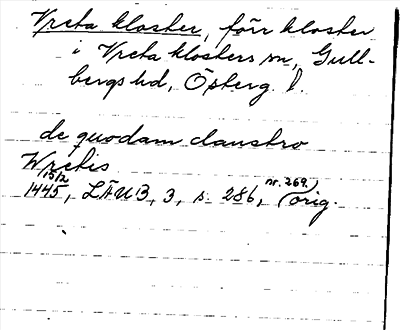 Vreta kloster, förr kloster
i Vreta klosters sn, Gull-
bergs hd, Österg. l.
de quodam claustro
Wretis
15/2 nr. 269,
1445, LÄUB, 3, s. 286, (orig.)